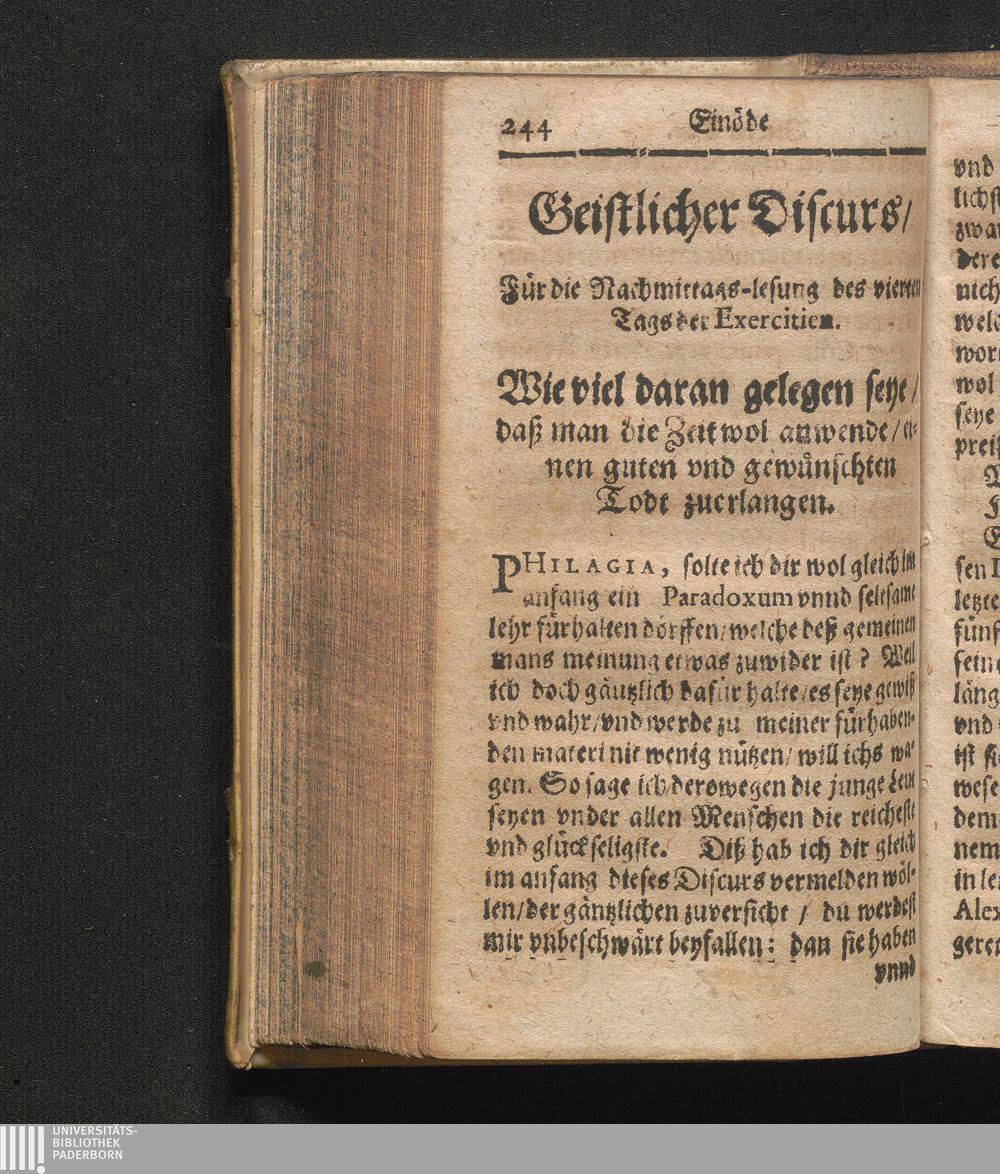 244 Einöde
Geistlicher Discurs/
Für die Nachmittags-lesung des vierten
Tags der Exercitien.
Wie viel daran gelegen seye/
daß man die Zeit wol anwende/ ei-
nen guten vnd gewünschten
Todt zuerlangen.
PHILAGIA, solte ich dir wol gleich im
anfang ein Paradoxum vnnd seltsame
lehr fürhalten dörffen/welche deß gemeinen
mans meinung etwas zuwider ist? Weil
ich doch gäntzlich dafür halte/es seye gewiß
vnd wahr/vnd werde zu meiner fürhaben-
den materi nit wenig nützen/ will ichs wa-
gen. So sage ich/derowegen die junge Leut
seyen vnder allen Menschen die reicheste
vnd glückseligste. Diß hab ich dir gleich
im anfang dieses Discurs vermelden wöl-
len/der gäntzlichen zuversicht / du werdest
mir vnbeschwärt beyfallen: dan sie haben
vnnd
vnd
lichs
zwa
dere
nich
welc
wor
wol
seye
prei
sen
letzte
fünf
sein
läng
vnd
ist
wese
dem
nem
in le
Alex
gere
UNIVERSITÄTS-
BIBLIOTHEK
PADERBORN